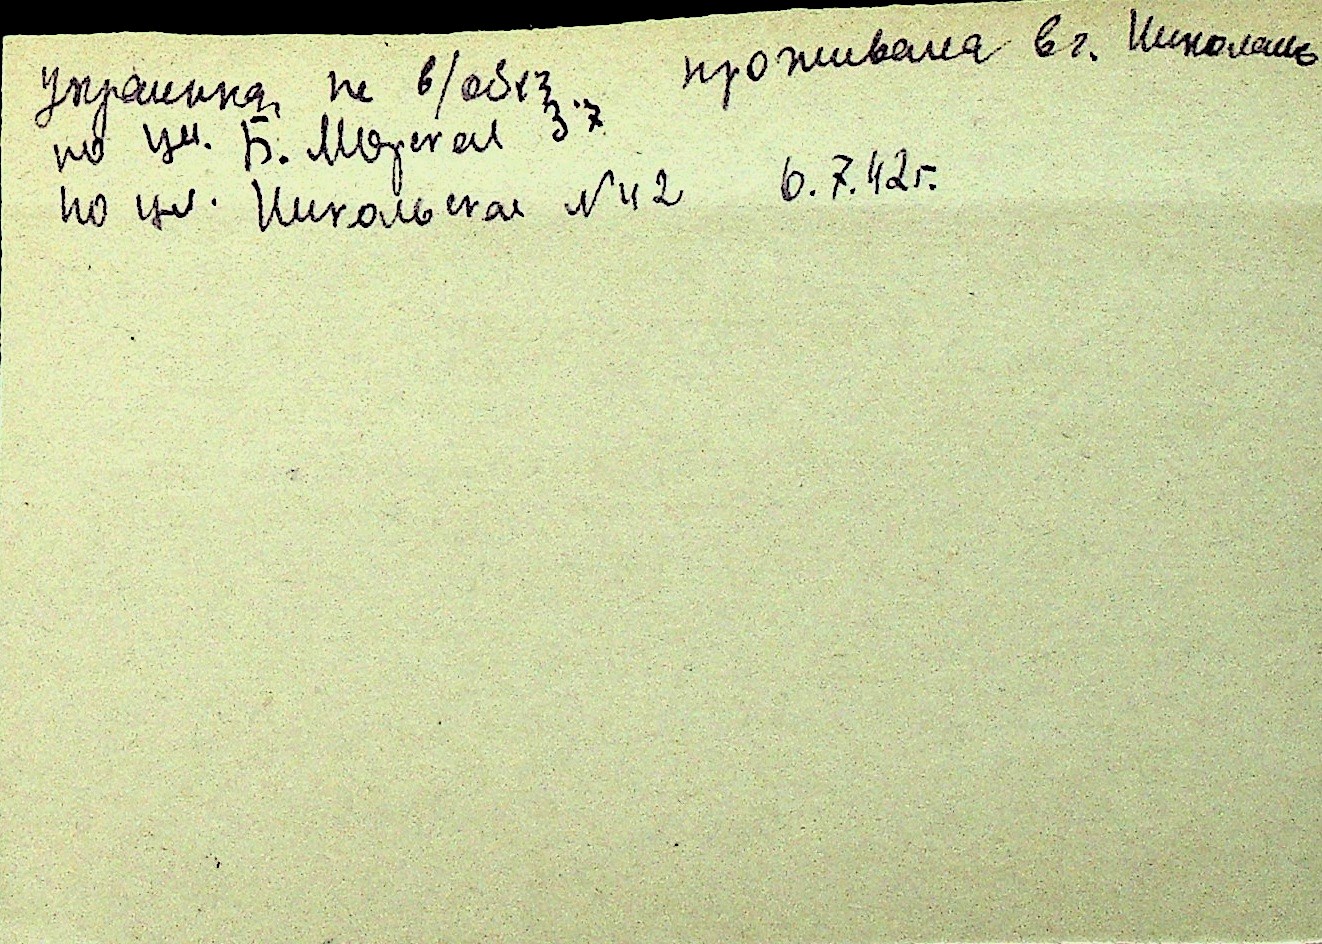 украинка, не в/обяз, проживала в г. Николаев
по ул. Б. Морская 37
по ул. Никольская № 42 6.7.42г.